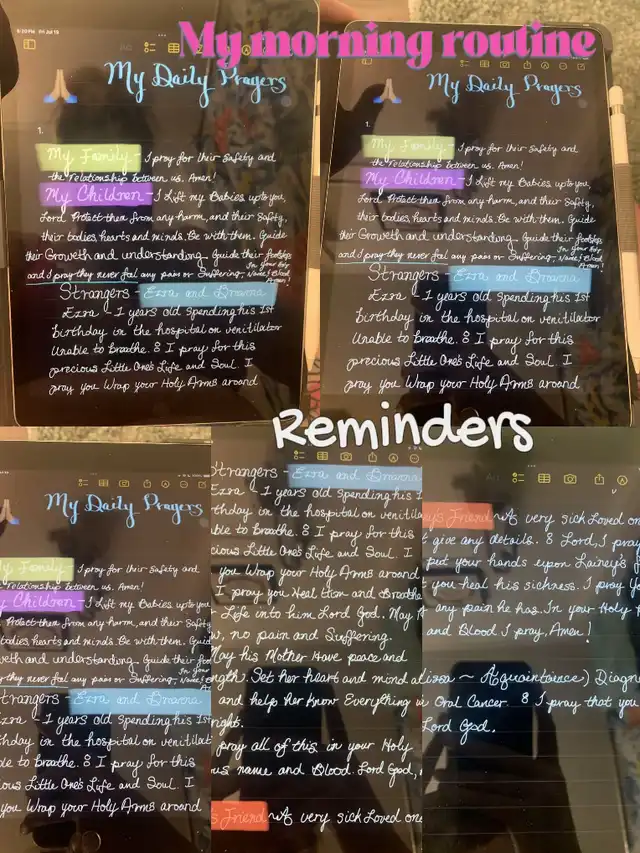 My morning routine
5:20 PM Fri Jul 19
My Daily Prayers
1.
My Family - I pray for their safety and
the relationship between us. Amen!
My Children - I Lift my Babies up to you,
Lord. Protect them from any harm, and their Safety,
their bodies, hearts and minds. Be with them. Guide
their Growth and understanding. Guide their footsteps
In your Holy
and I pray they never feel any pain or Suffering, Name & Blood
Amen!
Strangers - Ezra and
Ezra - 1 years old Spending his 1st
birthday in the hospital on ventilator
Unable to Breathe. I pray for this
precious Little One's Life and Soul. I
pray you Wrap your Holy Arms around
My Daily Prayers
1.
My Family - I pray for their safety and
the relationship between us. Amen!
My Children - I Lift my Babies up to you,
Lord. Protect them from any harm, and their Safety,
their bodies, hearts and minds. Be with them. Guide
their Growth and understanding. Guide their footsteps
In your Holy
and I pray they never feel any pain or Suffering, Name & Blood
Amen!
Strangers - Ezra and
Ezra - 1 years old Spending his 1st
birthday in the hospital on ventilator
Unable to Breathe. I pray for this
precious Little One's Life and Soul. I
pray you Wrap your Holy Arms around
Reminders
My Daily Prayers
y Family - I pray for their safety and
the relationship between us. Amen!
y Children - I Lift my Babies up to you
Lord. Protect them from any harm, and their Safety
bodies, hearts and minds. Be with them. Guid
owth and understanding. Guide their foot
In your
and I pray they never feel any pain or Suffering, Name
trangers - Ezra and
zra - 1 years old Spending his 1st
thday in the hospital on ventilat
ble to Breathe. I pray for this
ious Little One's Life and Soul. I
you Wrap your Holy Arms around
Strangers - Ezra and
Ezra - 1 years old Spending his 1
thday in the hospital on ventila
ble to Breathe. I pray for this
cious Little One's Life and Soul. I
you Wrap your Holy Arms around
I pray you Heal him and Breathe
Life into him Lord God. May
w, no pain and Suffering.
May his Mother Have peace and
ngth. Set her heart and mind at
and help her Know Everything w
right.
pray all of this in your Holy
us name and Blood. Lord God,
s Friend - A very sick Loved one
y's Friend - A very sick Loved on
t give any details. Lord, I pray
put your hands upon Lainey's f
t you heal his sickness. I pray yo
any pain he has. In your Holy
and Blood I pray, Amen!
issa ~ Aquaintance) Diagno
Oral Cancer. I pray that you
Lord God.